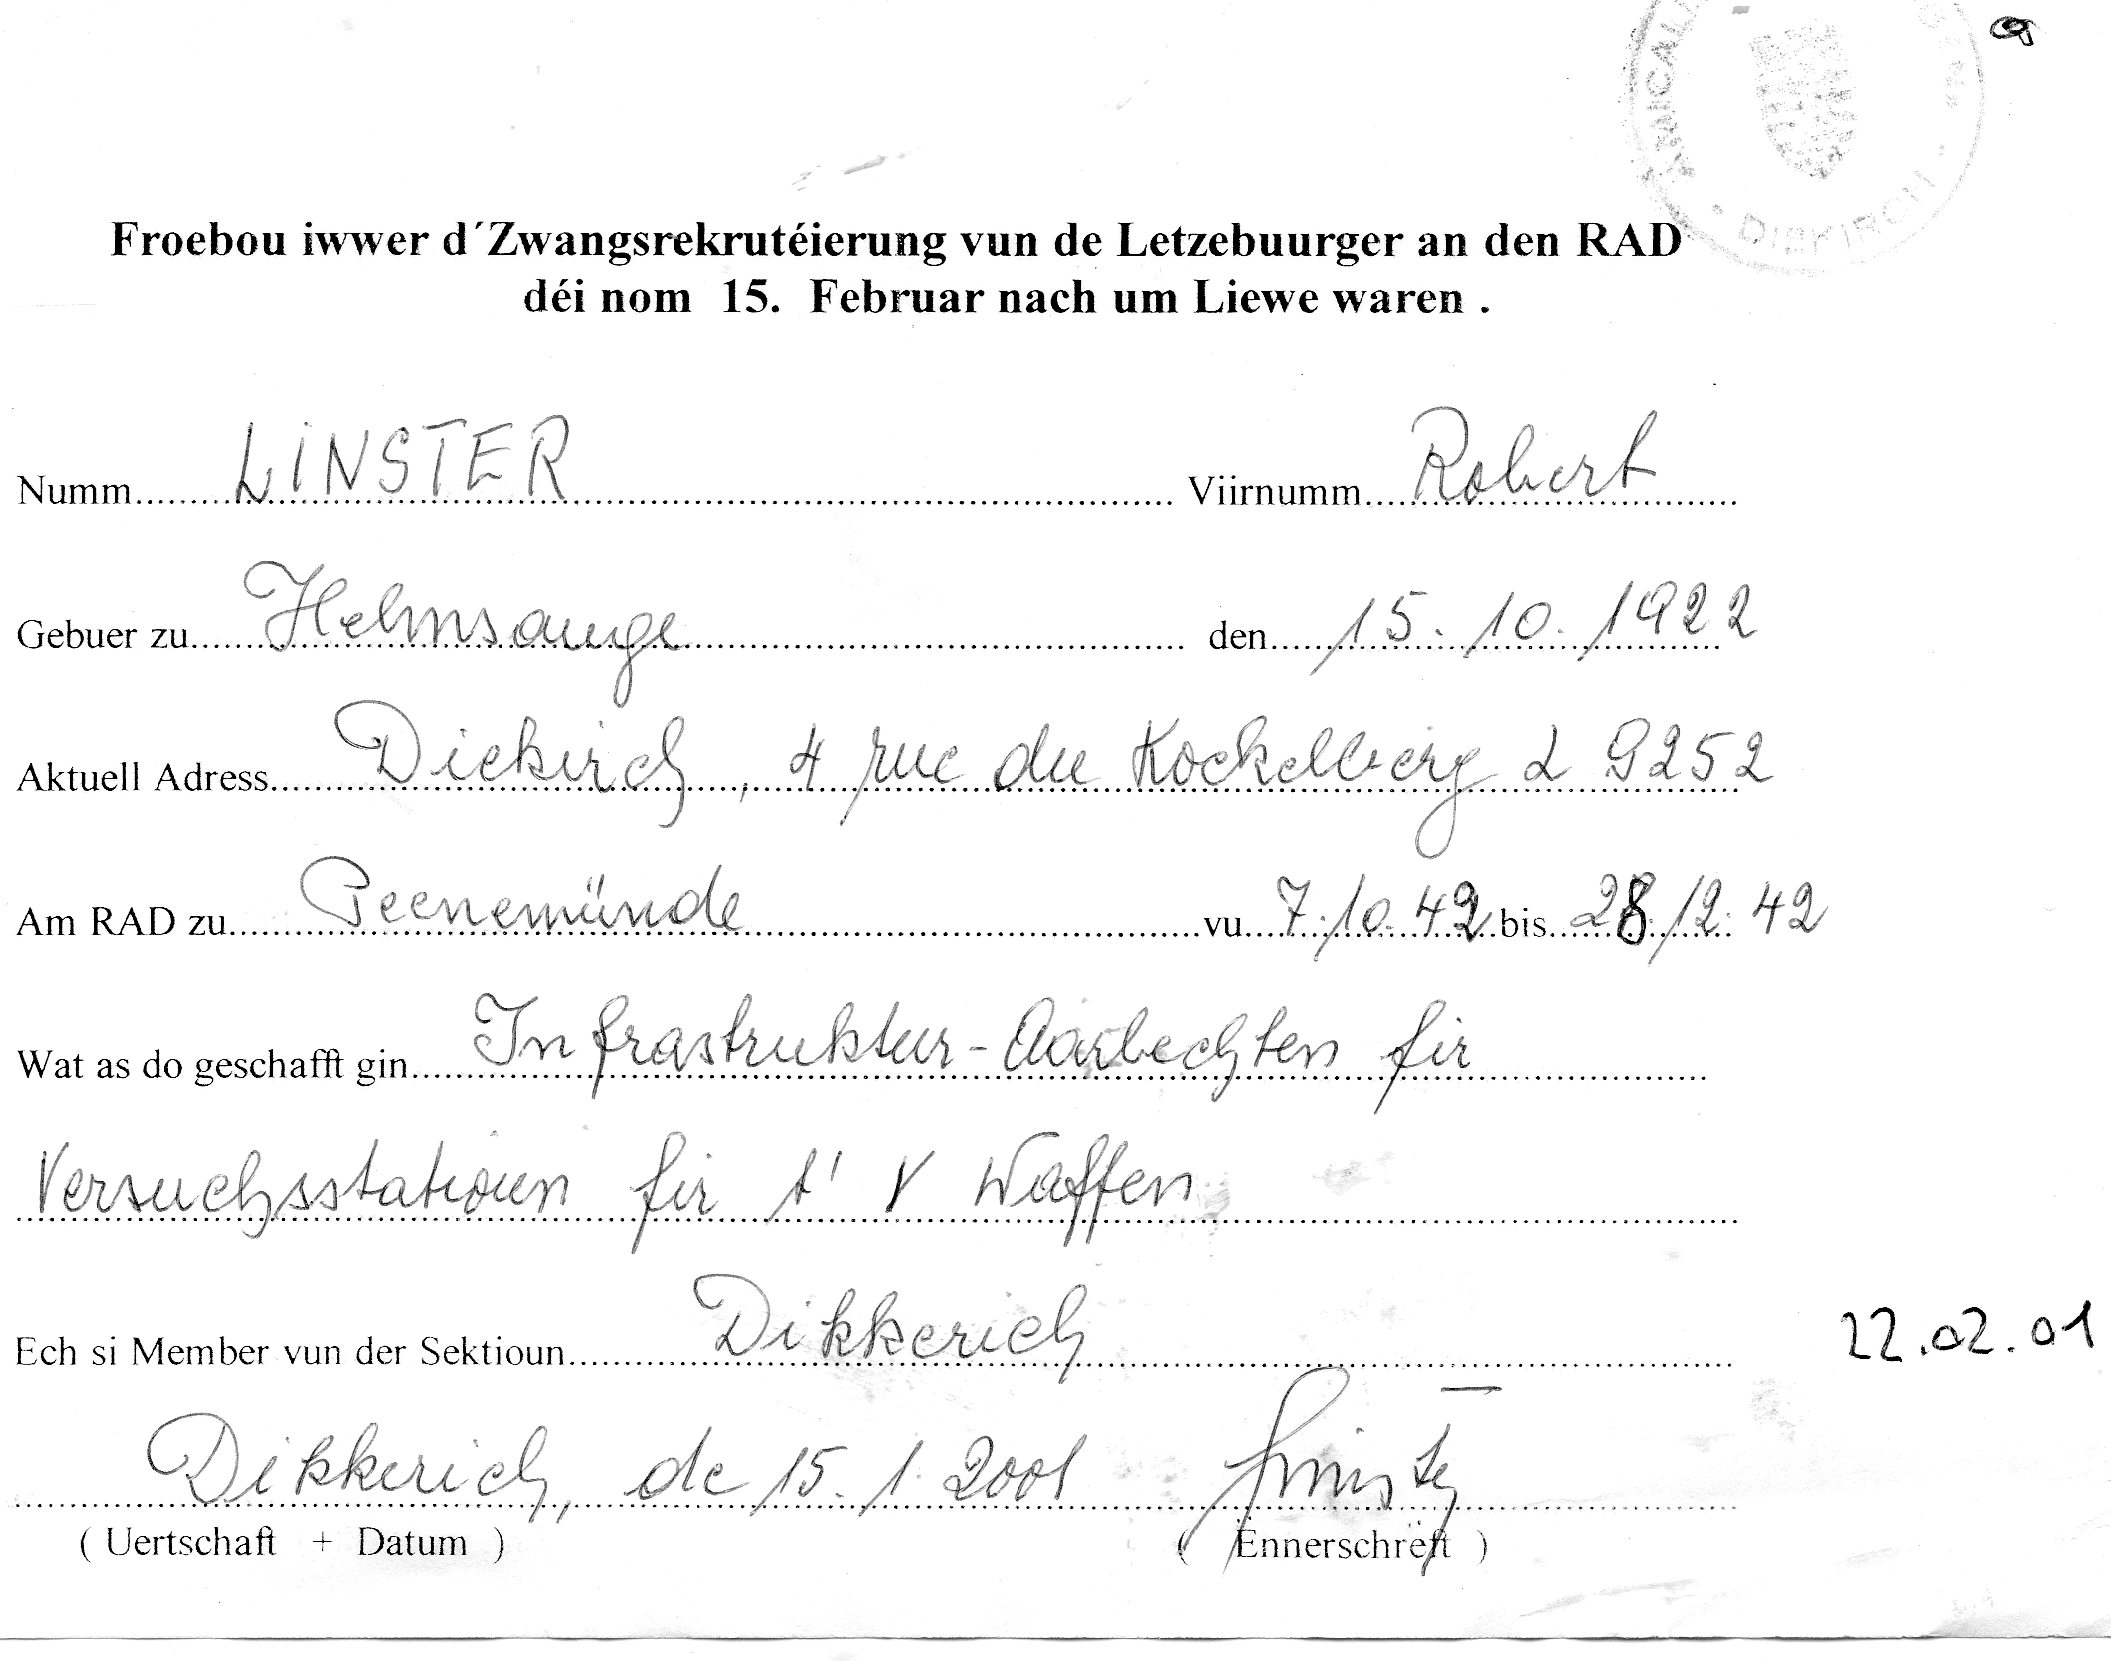 AMICAL
DIEKIRCH
Froebou iwwer d´Zwangsrekrutéierung vun de Letzebuurger an den RAD
déi nom 15. Februar nach um Liewe waren .
Numm LINSTER Viirnumm Robert
Gebuer zu Helmsange den 15. 10. 1922
Aktuell Adress Diekirch, 4 rue du Kockelberg L 9252
Am RAD zu Peenemünde vu 7.10.42 bis 28.12.42
Wat as do geschafft gin Infrastruktur-Aarbechten fir
Versuchsstatioun fir t' V Waffen
Ech si Member vun der Sektioun Dikkerich
22.02.01
Dikkerich, de 15.1.2001 Linster
( Uertschaft + Datum ) ( Ënnerschrëft )